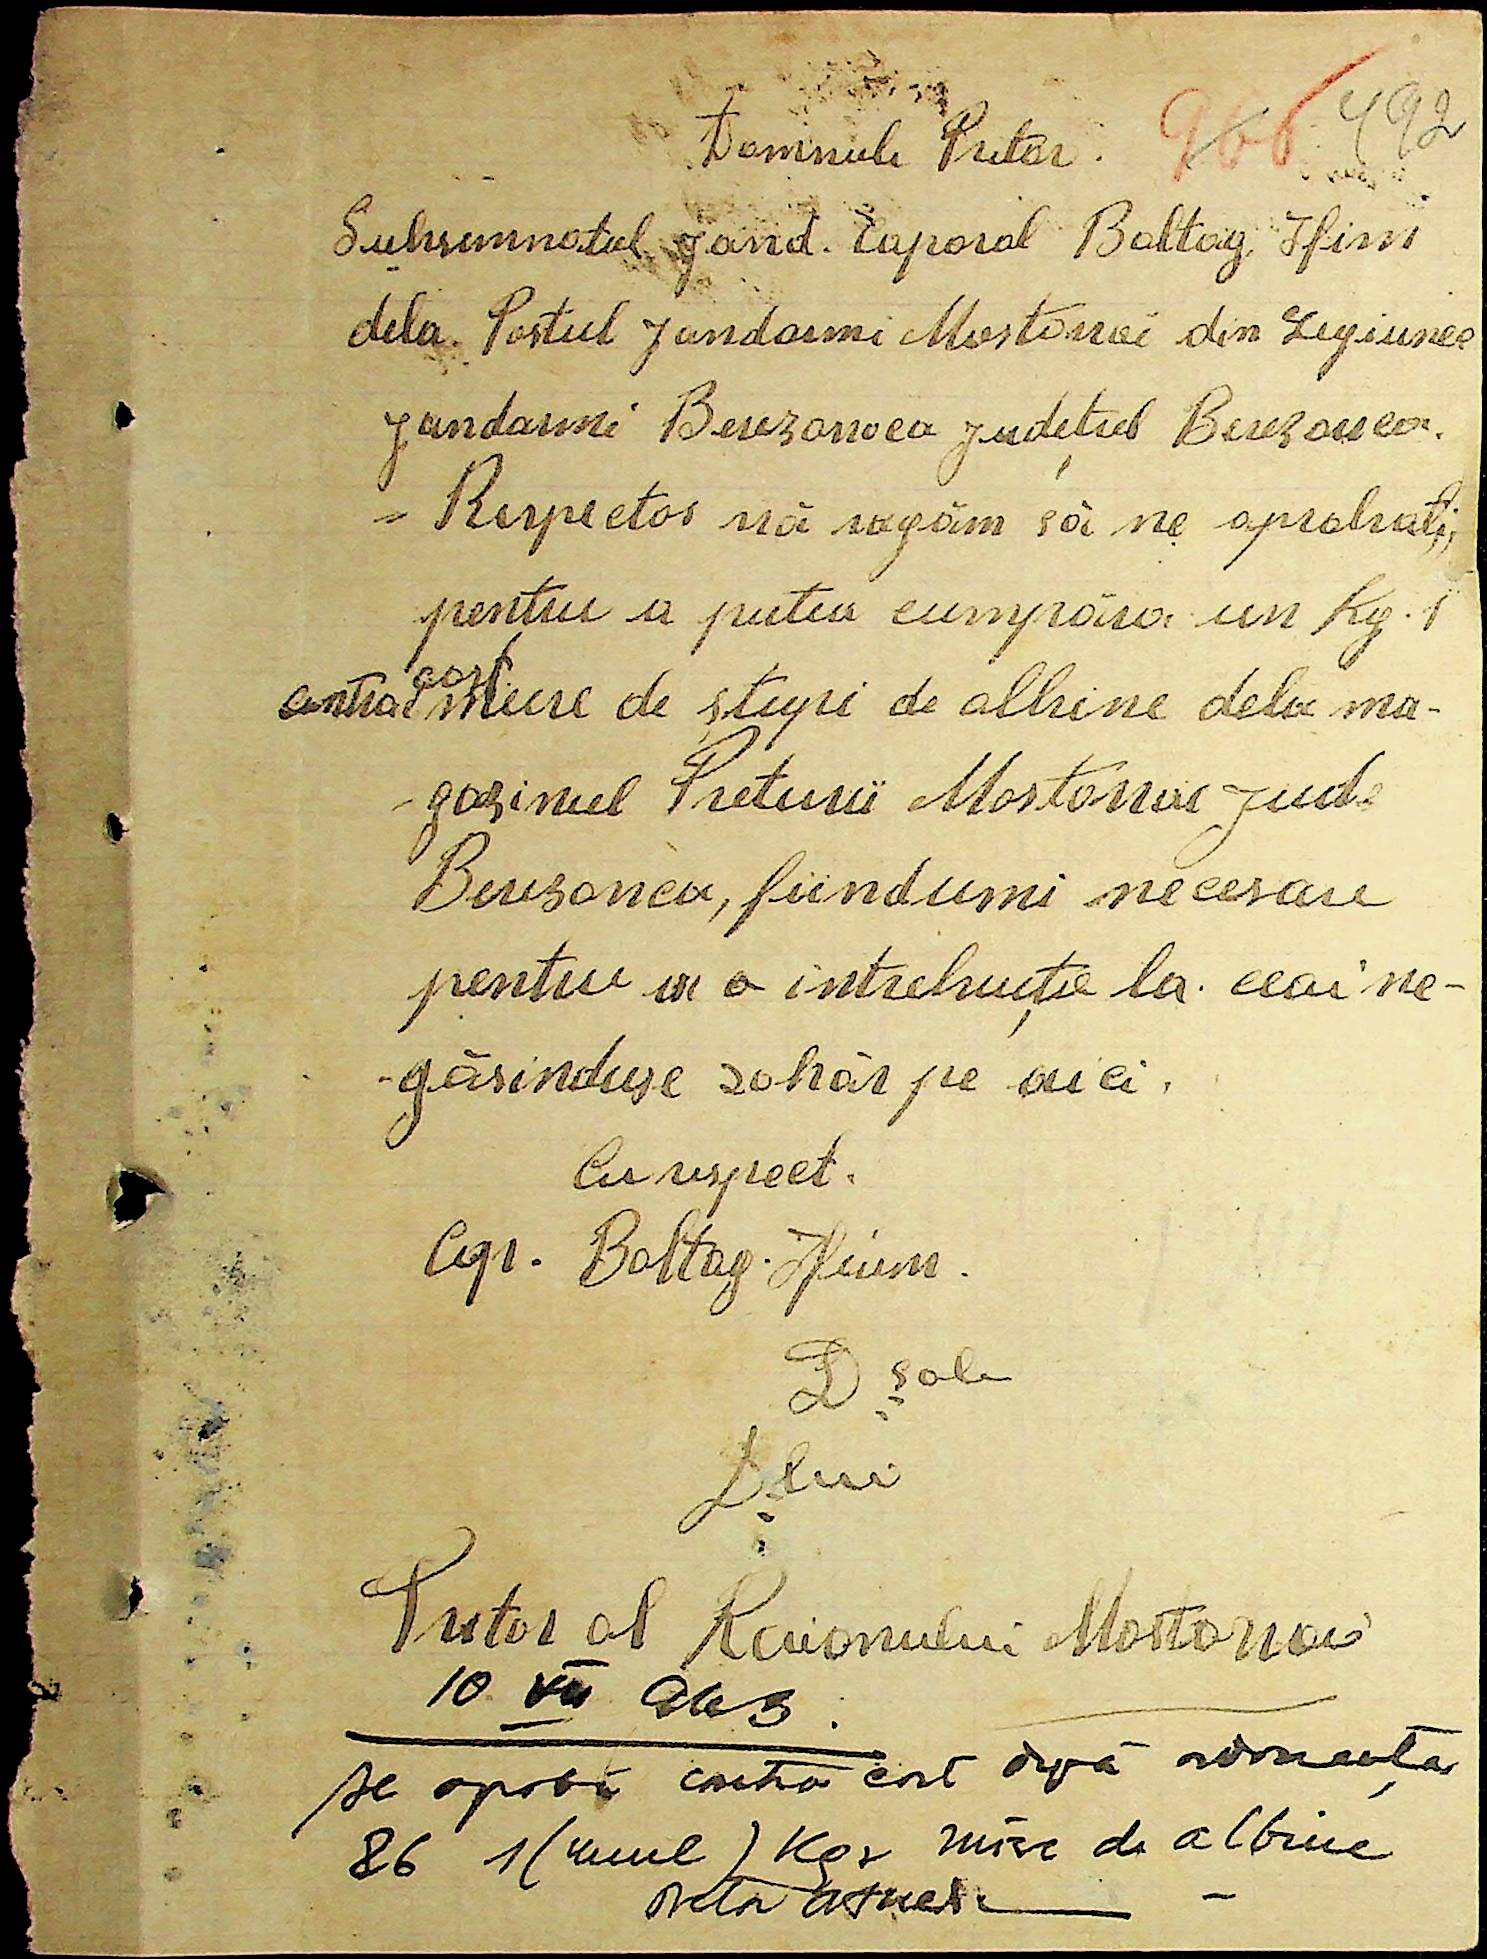 966 492
Domnule Pretor.
Subsemnatul jand. Caporal Baltag Ifim
dela Postul Jandarmi Mostovoi din Legiunea
Jandarmi Berezovca Județul Berezovca.
- Respectos vă rugăm să ne aprobați,
pentru a putea cumpăra un Kg. 1
contra cost miere de stupi de albine dela ma-
-gazinul Preturii Mostovoi Jud.
Berezovca, fiindumi necesare
pentru a o intrebuința la ceai ne-
-găsinduse zahăr pe aici.
Cu respect.
Cap. Baltag Ifim.
D sale
D lui
Pretor al Raionului Mostovoi
10 VII 943.
se aprobă contra cost după ordonanța
86 1 (unul) Kgr miere de albine
Pretor